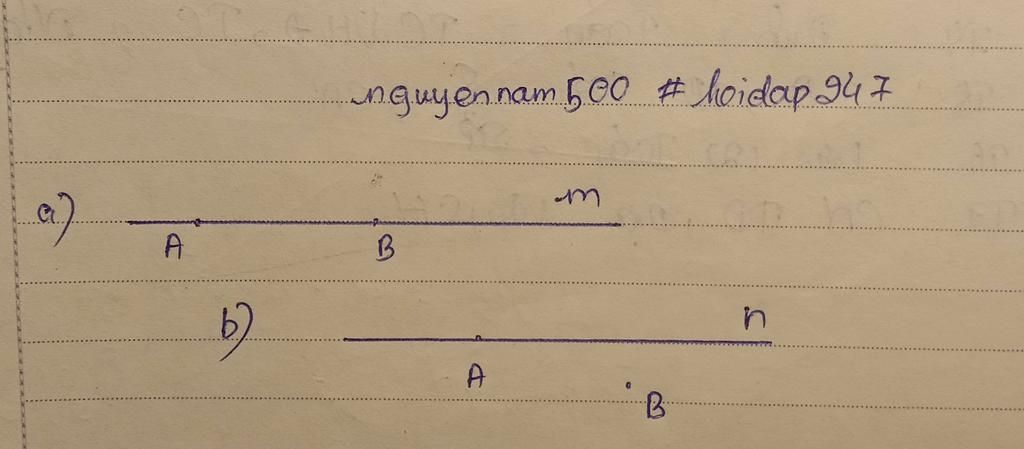 nguyennam500 # hoidap247
a)
m
A B
b)
n
A
B